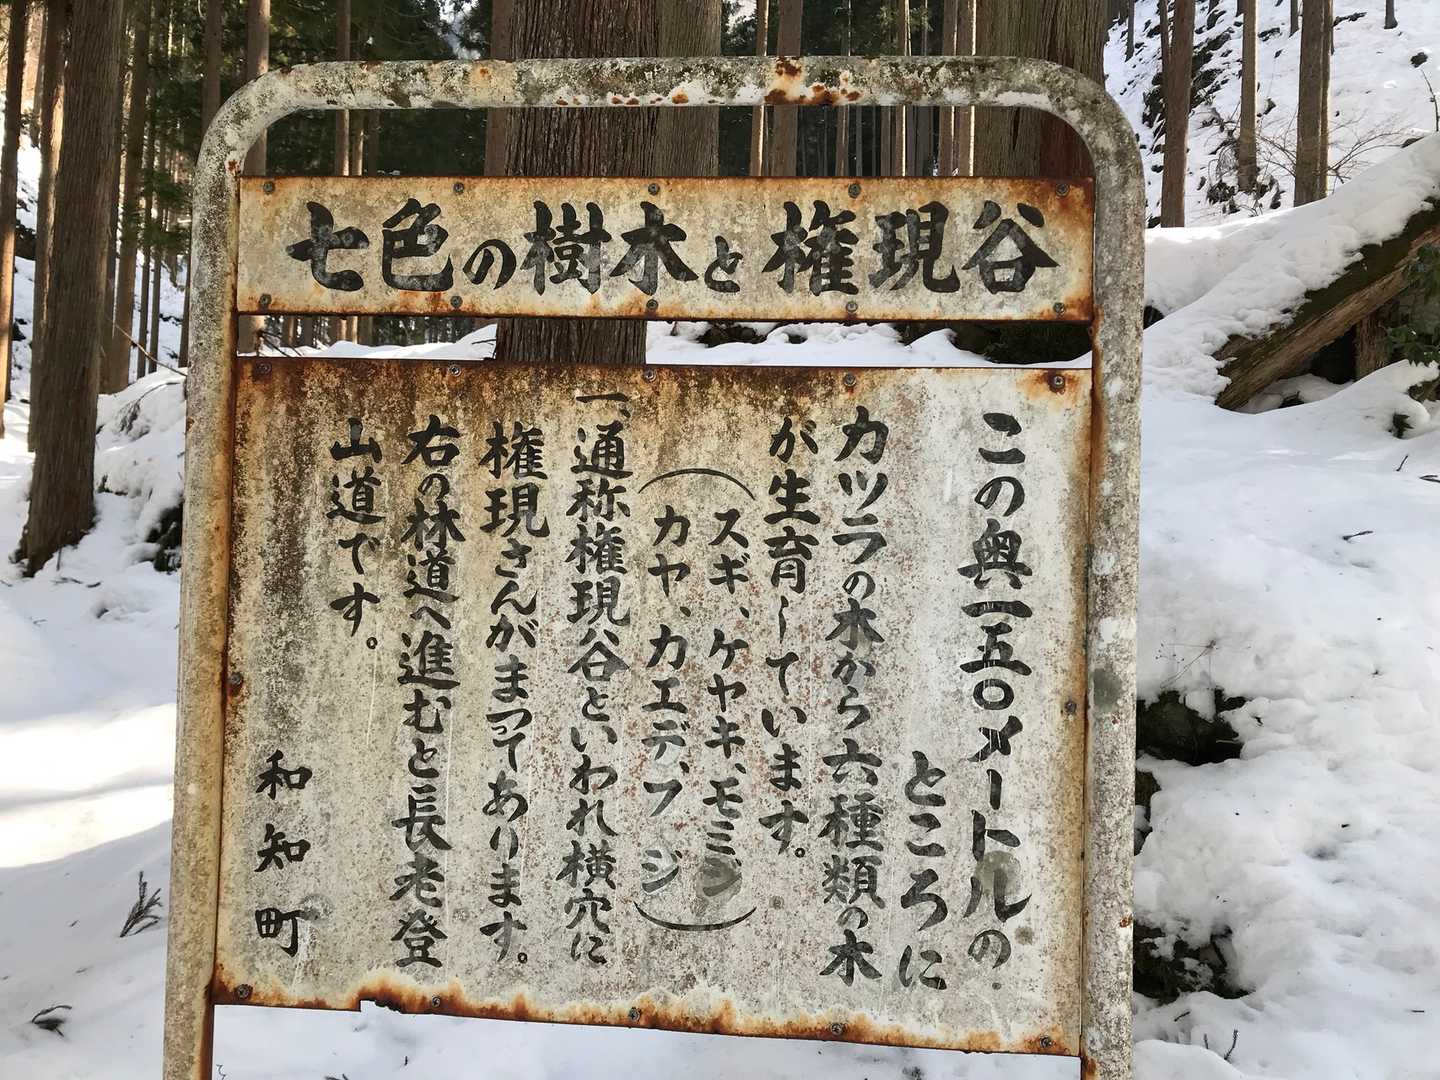 七色の樹木と権現谷
この奥一五〇メートルの
ところに
カツラの木から六種類の木
が生育しています。
(スギ、ケヤキ、モミジ
カヤ、カエデ、フジ)
一、通称権現谷といわれ横穴に
権現さんがまつってあります。
右の林道へ進むと長老登
山道です。
和知町